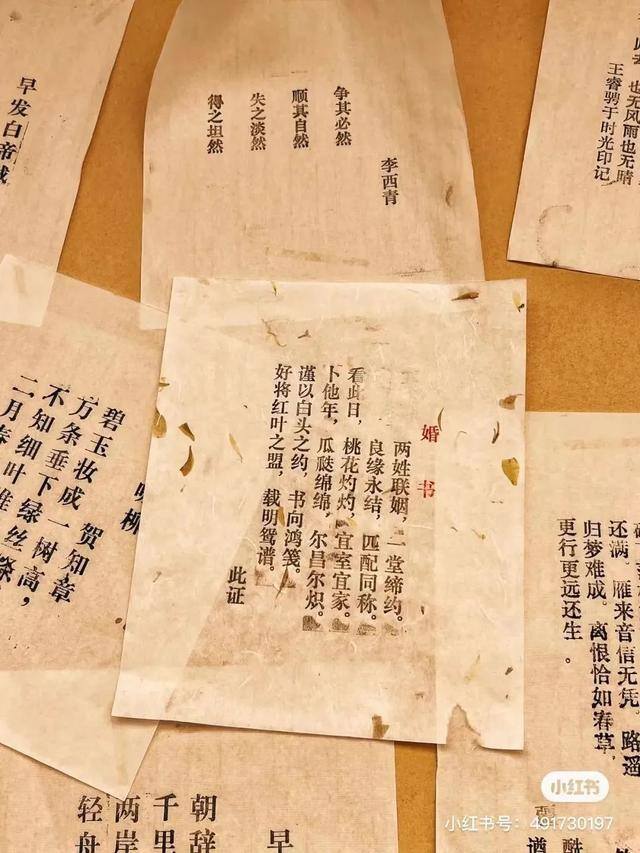 早发白帝城
李西青
争其必然
顺其自然
失之淡然
得之坦然
也无风雨也无晴
王睿骋于时光印记
婚书
两姓联姻,一堂缔约。
良缘永结,匹配同称。
看此日,桃花灼灼,宜室宜家。
卜他年,瓜瓞绵绵,尔昌尔炽。
谨以白头之约,书向鸿笺。
好将红叶之盟,载明鸳谱。
此证
柳
贺知章
碧玉妆成一树高,
万条垂下绿丝绦
不知细叶谁
二月春
还满。雁来音信无凭,路遥
归梦难成。离恨恰如春草,
更行更远还生。
早
朝辞
千里
两岸
轻舟
小红书
小红书号:491730197